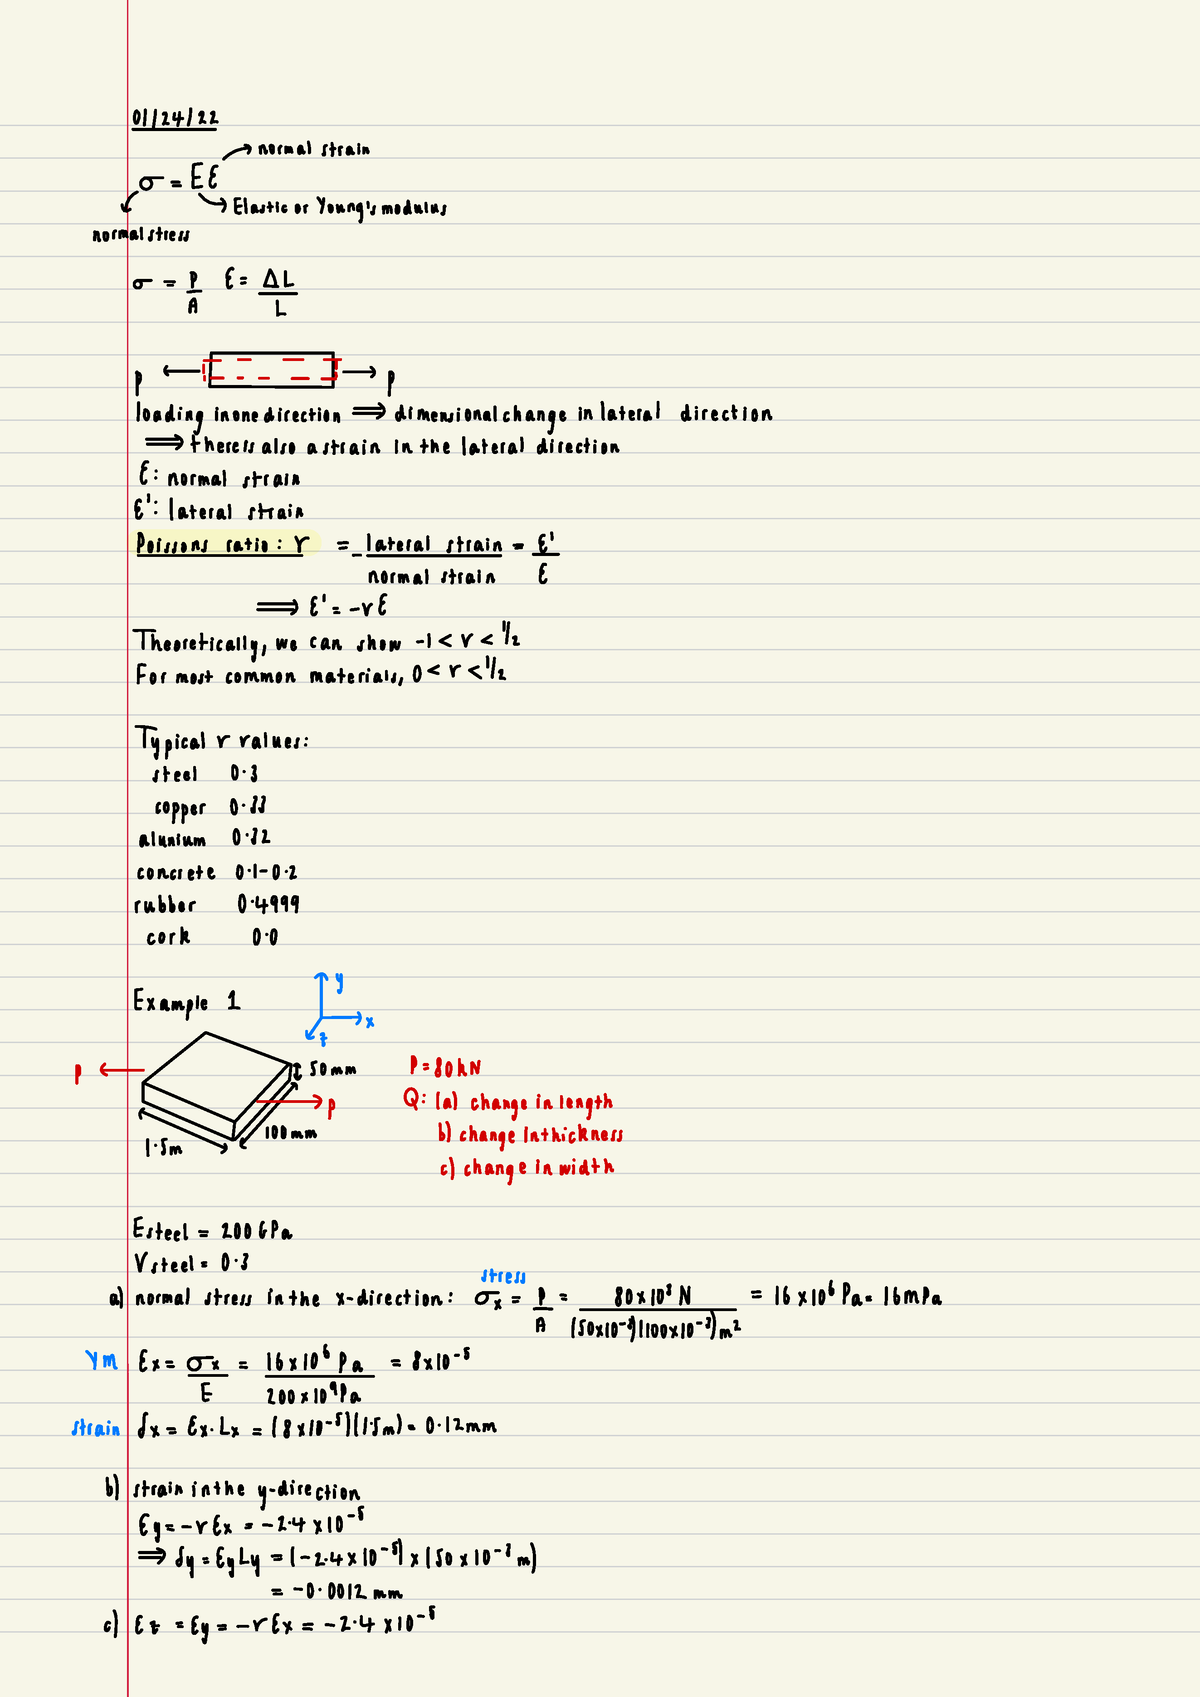 01/24/22
normal strain
σ = Eε
Elastic or Young's modulus
normal stress
σ = P/A ε = ΔL/L
P P
loading in one direction ⟹ dimensional change in lateral direction
⟹ there is also a strain in the lateral direction
ε: normal strain
ε': lateral strain
Poissons ratio: r = - lateral strain/normal strain = ε'/ε
⟹ ε' = -rε
Theoretically, we can show -1 < r < 1/2
For most common materials, 0 < r < 1/2
Typical r values:
steel 0.3
copper 0.33
alunium 0.32
concrete 0.1-0.2
rubber 0.4999
cork 0.0
Example 1
y
x
z
P
50mm
P
100mm
1.5m
P = 80kN
Q: (a) change in length
b) change in thickness
c) change in width
Esteel = 200 GPa
Vsteel = 0.3
stress
a) normal stress in the x-direction: σx = P/A = 80x10³ N/(50x10⁻³)(100x10⁻³)m² = 16 x10⁶ Pa = 16mPa
Ym εx = σx/E = 16x10⁶ Pa/200x10⁹Pa = 8x10⁻⁵
strain δx = εx·Lx = (8x10⁻⁵)(1.5m) = 0.12mm
b) strain in the y-direction
εy = -rεx = -2.4 x10⁻⁵
⟹ δy = εyLy = (-2.4x10⁻⁵) x (50 x10⁻³ m)
= -0.0012 mm
c) εz = εy = -rεx = -2.4 x10⁻⁵